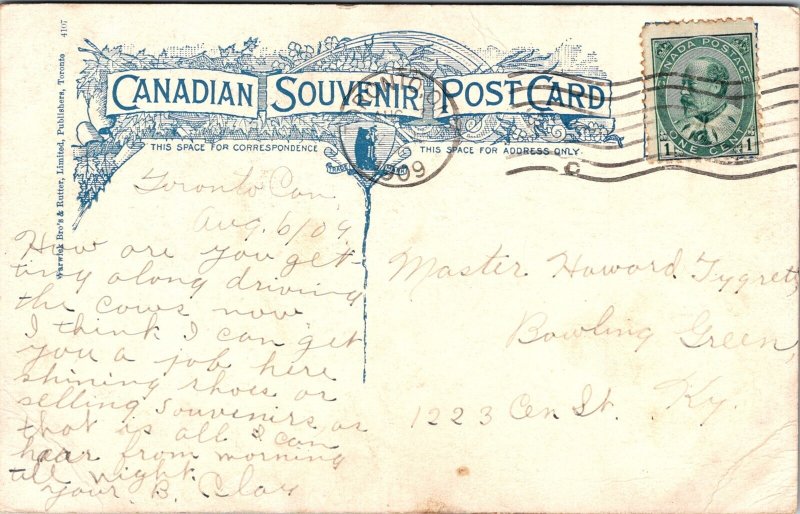 Warwick Bro's & Rutter, Limited, Publishers, Toronto 4107
CANADIAN SOUVENIR POST CARD
THIS SPACE FOR CORRESPONDENCE
THIS SPACE FOR ADDRESS ONLY.
TRADE MARK
1909
C
CANADA POSTAGE
1 ONE CENT 1
Toronto Can
Aug. 6/09.
How are you get-
ting along driving
the cows now
I think I can get
you a job here
shining shoes or
selling Souvenirs as
that is all I can
hear from morning
till night.
Your B. Clay
Master Howard Tygret
Bowling Green,
1223 Cen St. Ky.